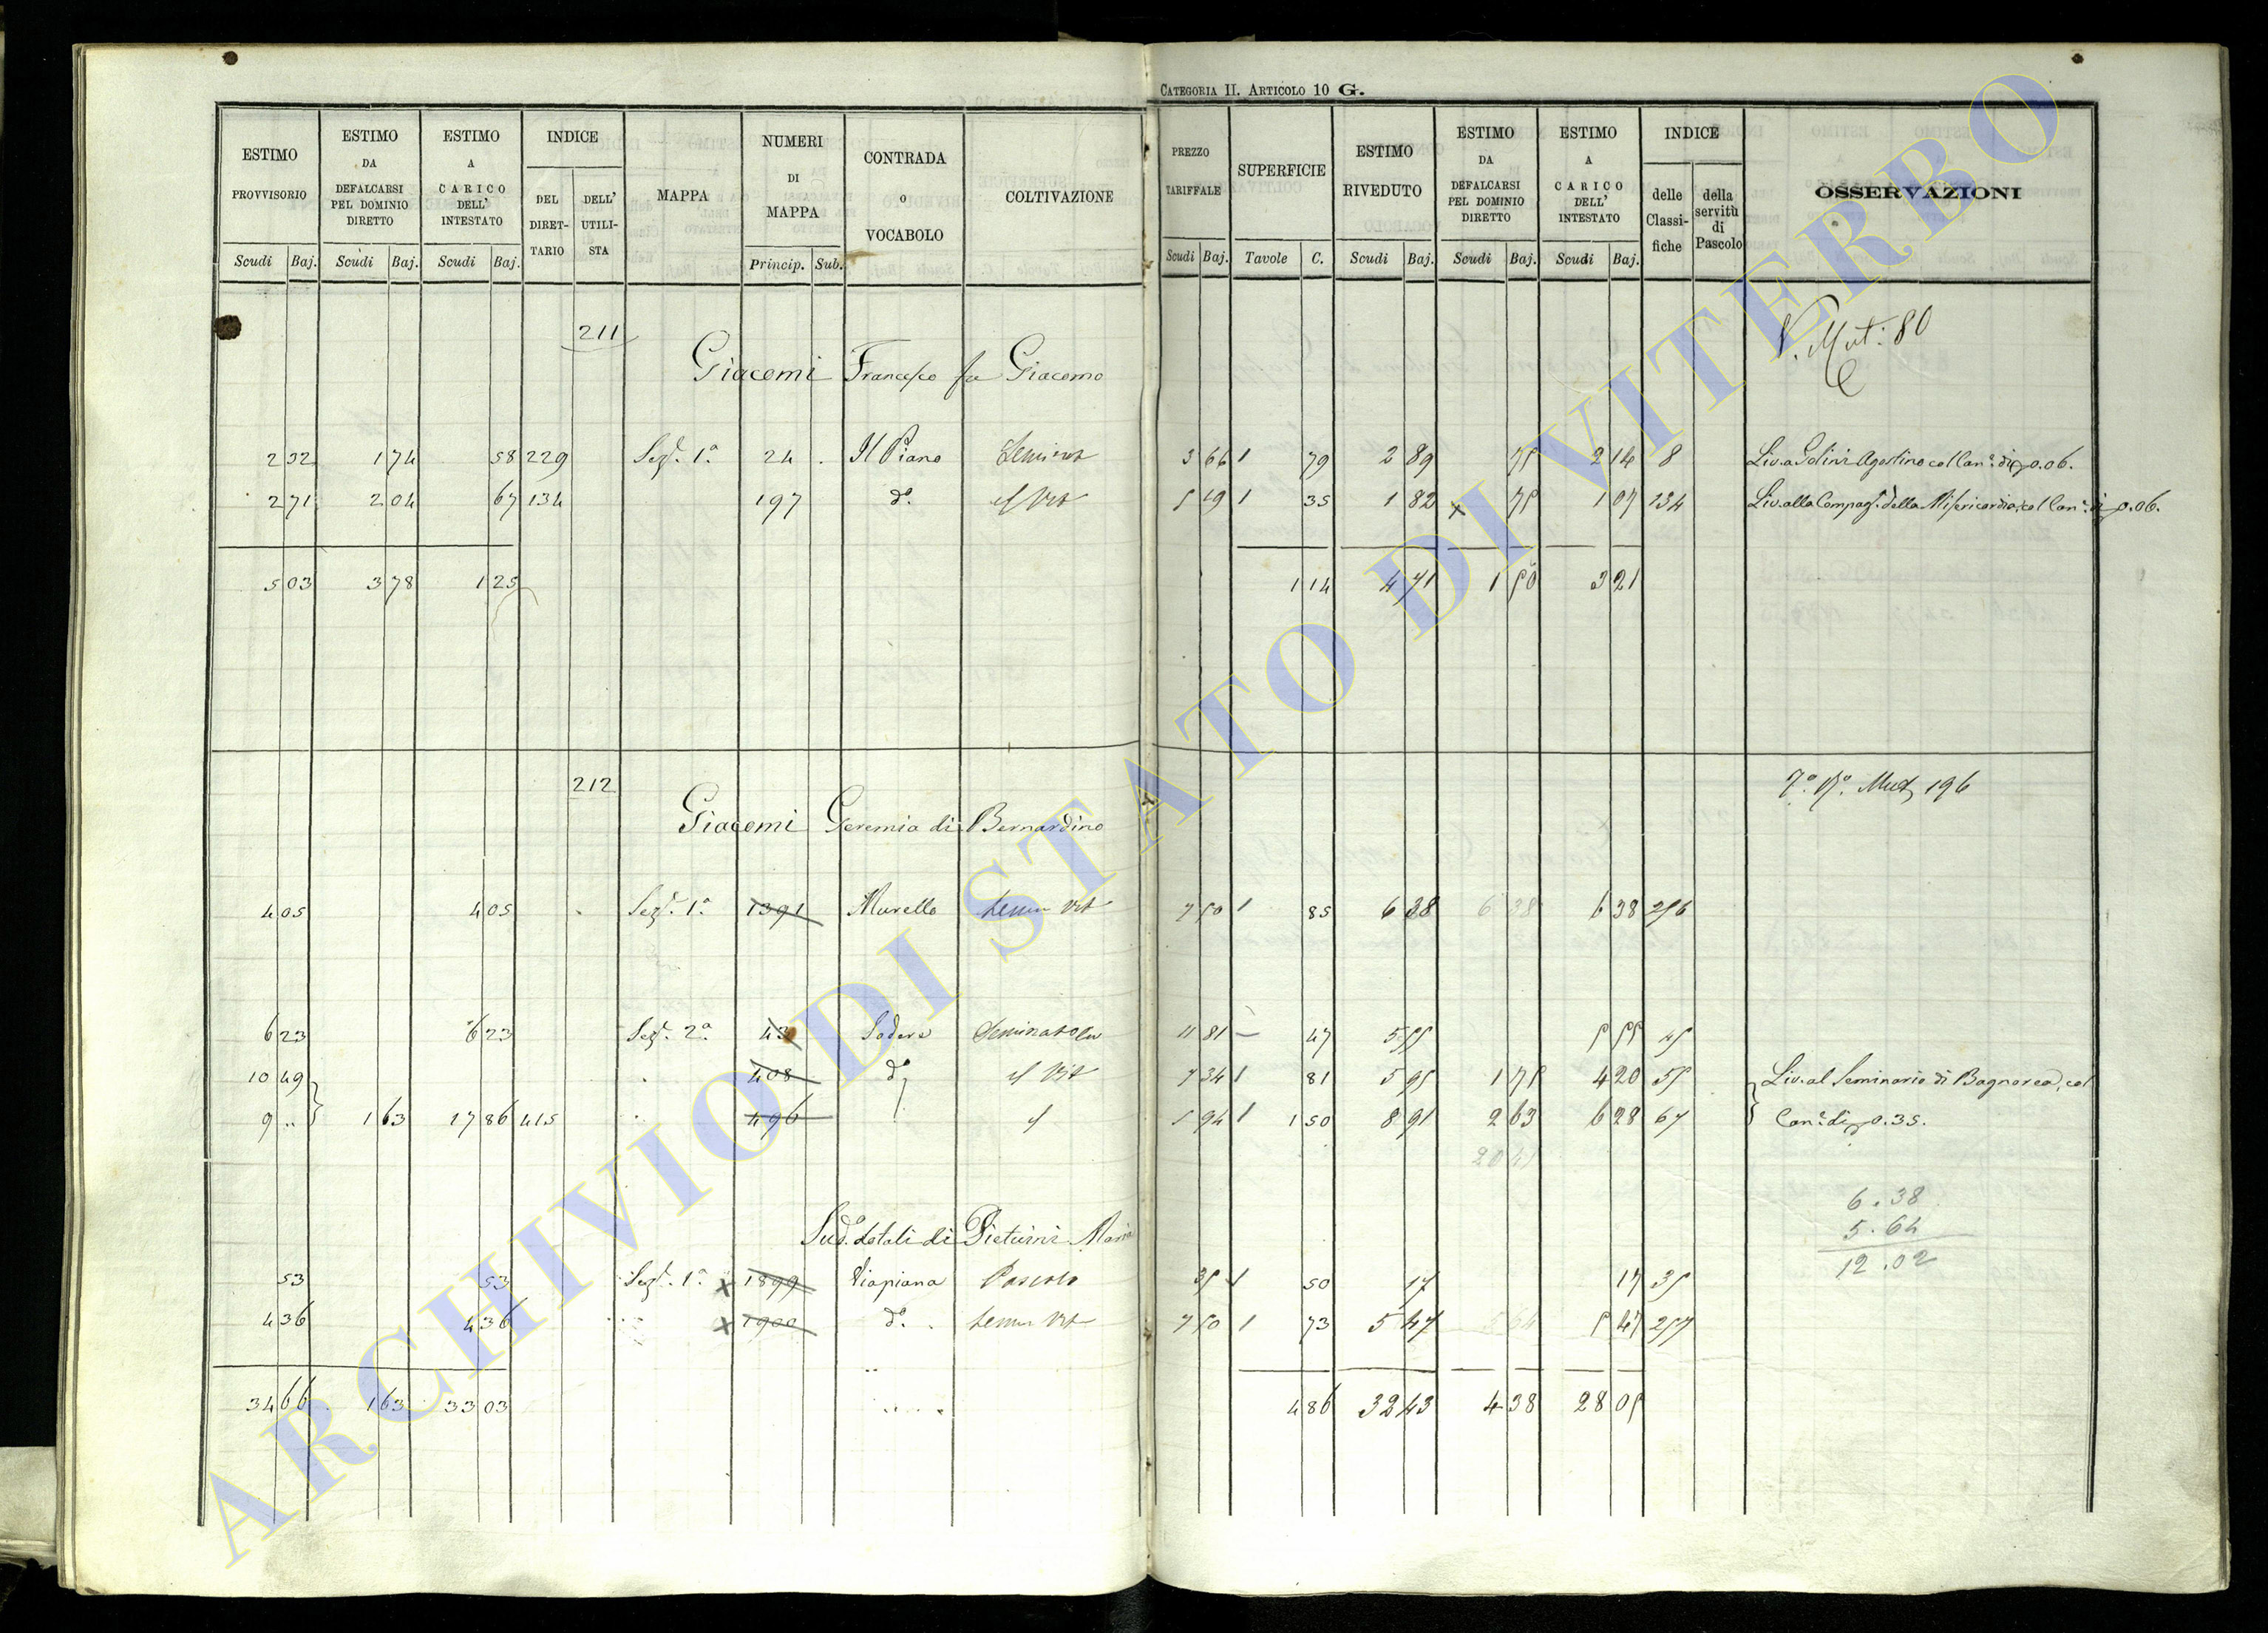 CATEGORIA II. ARTICOLO 10 G.
ESTIMO PROVVISORIO Scudi Baj. ESTIMO DA DEFALCARSI PEL DOMINIO DIRETTO Scudi Baj. ESTIMO A CARICO DELL' INTESTATO Scudi Baj. INDICE DEL DIRET-TARIO DELL' UTILI-STA MAPPA NUMERI DI MAPPA Princip. Sub. CONTRADA o VOCABOLO COLTIVAZIONE
PREZZO TARIFFALE Scudi Baj. SUPERFICIE Tavole C. ESTIMO RIVEDUTO Scudi Baj. ESTIMO DA DEFALCARSI PEL DOMINIO DIRETTO Scudi Baj. ESTIMO A CARICO DELL' INTESTATO Scudi Baj. INDICE delle Classi-fiche della servitù di Pascolo OSSERVAZIONI
211
Giacomi Francesco fu Giacomo
V. Mut: 80
2 32 1 74 58 229 Sezº. 1ª. 24 Il Piano Semin 3 66 1 79 2 89 75 2 14 8 Liv. a Golini Agostino col Canº: di 0.06.
2 71 2 04 67 134 197 dº. 5 19 1 35 1 82 x 75 1 07 134 Liv. alla Compagª. della Misericordia, col Canº: di 0.06.
5 03 3 78 1 25 1 14 4 71 1 50 3 21
212
Giacomi Geremia di Bernardino
Mut 196
4 05 4 05 Sezº. 1ª. 1391 Murello Semin Vit 7 50 1 85 6 38 6 38 6 38 256
6 23 6 23 Sezº. 2ª. 43 Sodere Seminat 11 81 – 47 5 55 5 55 45
10 49 408 dº Vit 7 34 1 81 5 95 1 75 4 20 55 Liv. al Seminario di Bagnorea, col
9 .. 1 63 17 86 415 496 5 94 1 1 50 8 91 2 63 6 28 67 Canº: di 0.35.
6.38
5.64
12.02
Sudº. dotali di Pieturini Maria
53 53 Sezº. 1ª. x 1899 Viapiana Pascolo 35 1 50 17 17 35
4 36 4 36 x 1900 dº. Semin Vit 7 50 1 73 5 47 5 64 5 47 257
34 66 1 63 33 03 4 86 32 43 4 38 28 05
ARCHIVIO DI STATO DI VITERBO